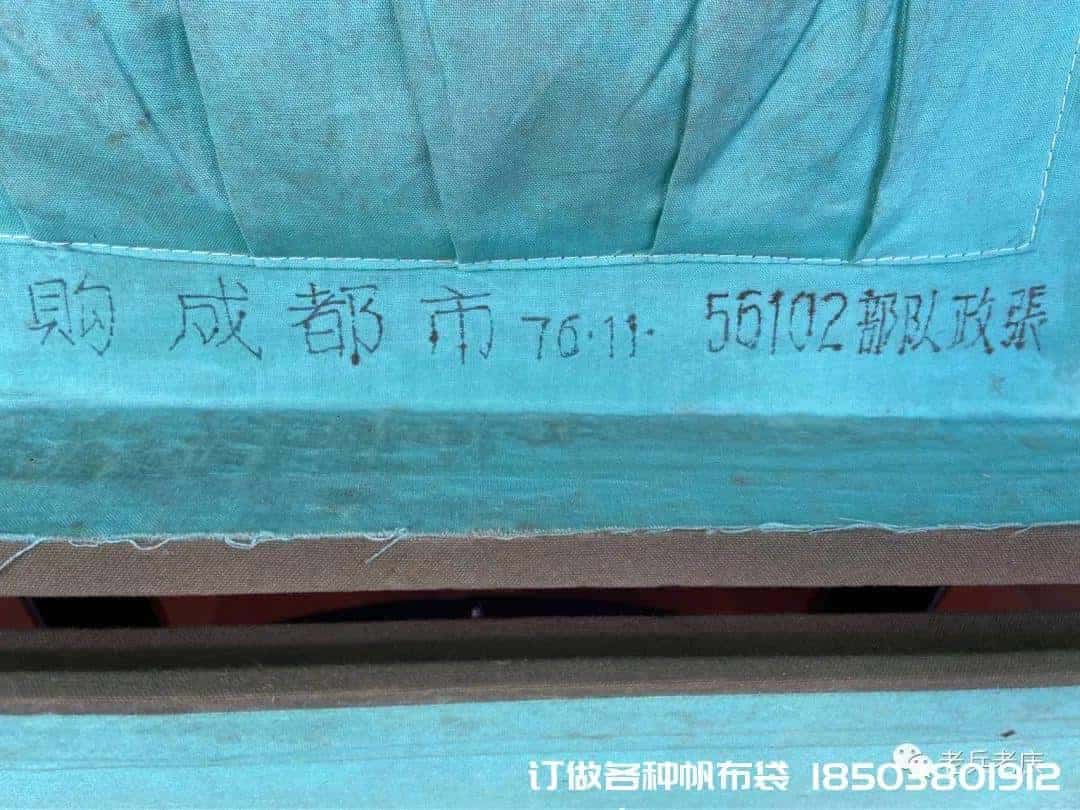 購 成都市 76·11· 56102部队政張
老兵老库
订做各种帆布袋 18503801912